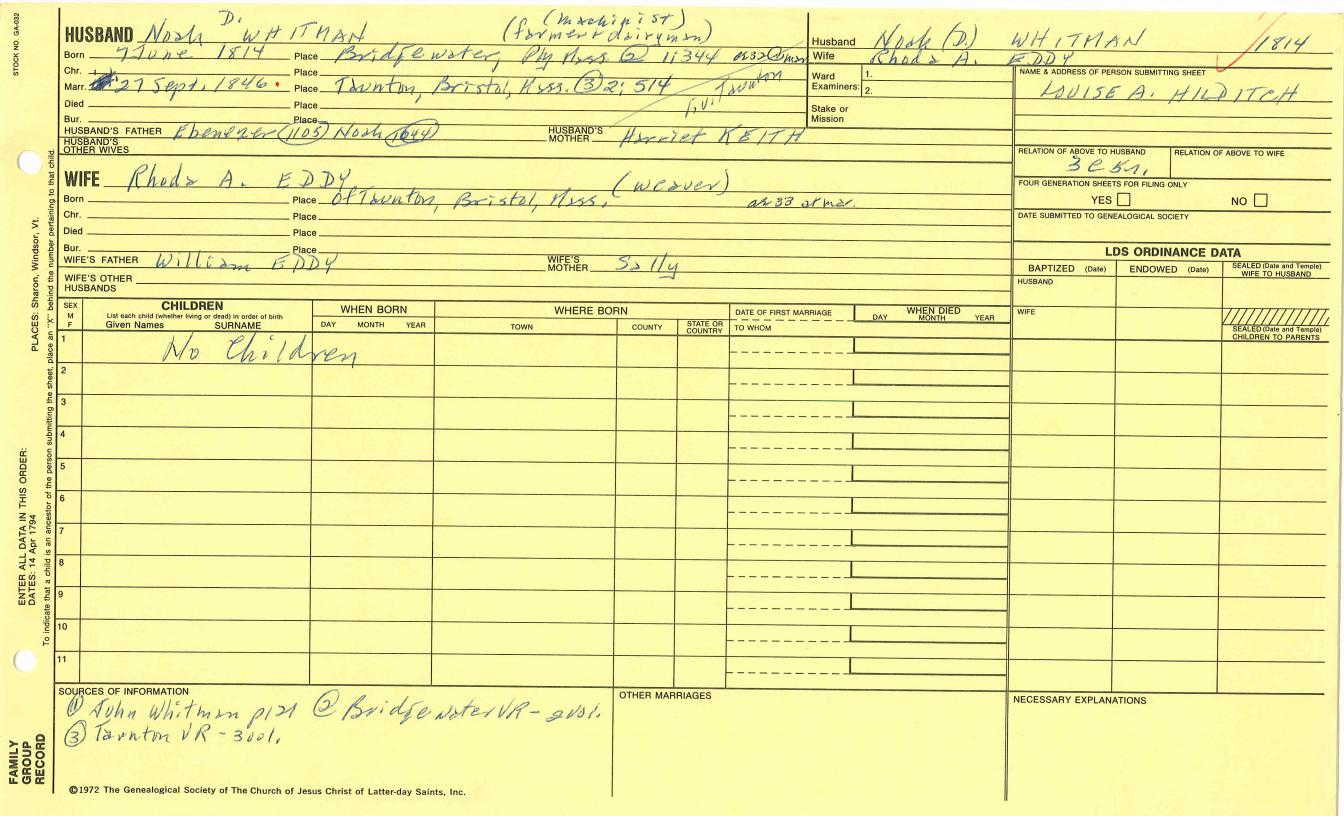 STOCK NO. GA-032
HUSBAND Noah D. WHITMAN (machinist) (farmer + dairyman)
Born 7 June 1814 Place Bridgewater, Ply Mass ② 1:344
Chr. Place
Marr. 27 Sept. 1846 Place Taunton, Bristol, Mass. ③ 2; 514 Taunton
Died Place
Bur. Place
HUSBAND'S FATHER Ebenezer (1105) Noah HUSBAND'S MOTHER Harriet KEITH
HUSBAND'S OTHER WIVES
WIFE Rhoda A. EDDY (weaver)
Born Place Of Taunton, Bristol, Mass. ae 33 at mar.
Chr. Place
Died Place
Bur. Place
WIFE'S FATHER William EDDY WIFE'S MOTHER Sally
WIFE'S OTHER HUSBANDS
Husband Noah (D.) WHITMAN 1814
Wife Rhoda A. EDDY
Ward Examiners: 1. 2.
Stake or Mission
NAME & ADDRESS OF PERSON SUBMITTING SHEET
LOUISE A. HILDITCH
RELATION OF ABOVE TO HUSBAND RELATION OF ABOVE TO WIFE
FOUR GENERATION SHEETS FOR FILING ONLY
YES NO
DATE SUBMITTED TO GENEALOGICAL SOCIETY
LDS ORDINANCE DATA
BAPTIZED (Date) ENDOWED (Date) SEALED (Date and Temple) WIFE TO HUSBAND
HUSBAND
WIFE
SEALED (Date and Temple) CHILDREN TO PARENTS
SEX M F CHILDREN WHEN BORN WHERE BORN DATE OF FIRST MARRIAGE WHEN DIED
List each child (whether living or dead) in order of birth
Given Names SURNAME DAY MONTH YEAR TOWN COUNTY STATE OR COUNTRY TO WHOM DAY MONTH YEAR
1 No Children
2
3
4
5
6
7
8
9
10
11
SOURCES OF INFORMATION
① John Whitman p121 ② Bridgewater VR - 2vol.
③ Taunton VR - 3vol.
OTHER MARRIAGES
NECESSARY EXPLANATIONS
©1972 The Genealogical Society of The Church of Jesus Christ of Latter-day Saints, Inc.
FAMILY GROUP RECORD
ENTER ALL DATA IN THIS ORDER:
DATES: 14 Apr 1794
PLACES: Sharon, Windsor, Vt.
To indicate that a child is an ancestor of the person submitting the sheet, place an "X" behind the number pertaining to that child.